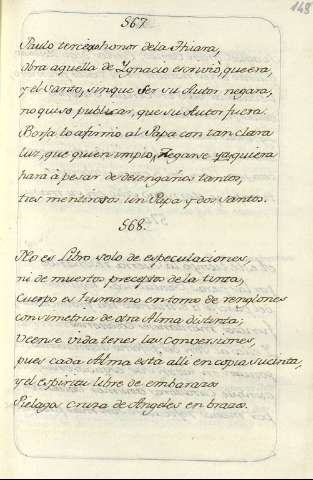 148
567.
Paulo tercero honor de la Thiara,
obra aquella de Ygnacio escrivió, que era,
y el Santo, sin que ser su Autor negara,
no quiso publicar, que su Autor fuera.
Borja lo afirmó al Papa con tan clara
luz, que quien impio, negarse ya quiera
hará à pesar de desengaños tantos,
tres mentirosos un Papa y dos Santos.
568.
No es Libro solo de especulaciones,
ni de muertos preceptos de la tinta,
Cuerpo es humano en tomo de renglones
con simetria de otra Alma distinta;
Vense vida tener las conversiones,
pues cada Alma está alli en copia sucinta,
y el espiritu libre de embarazos
Pielagos cruza de Angeles en brazos.